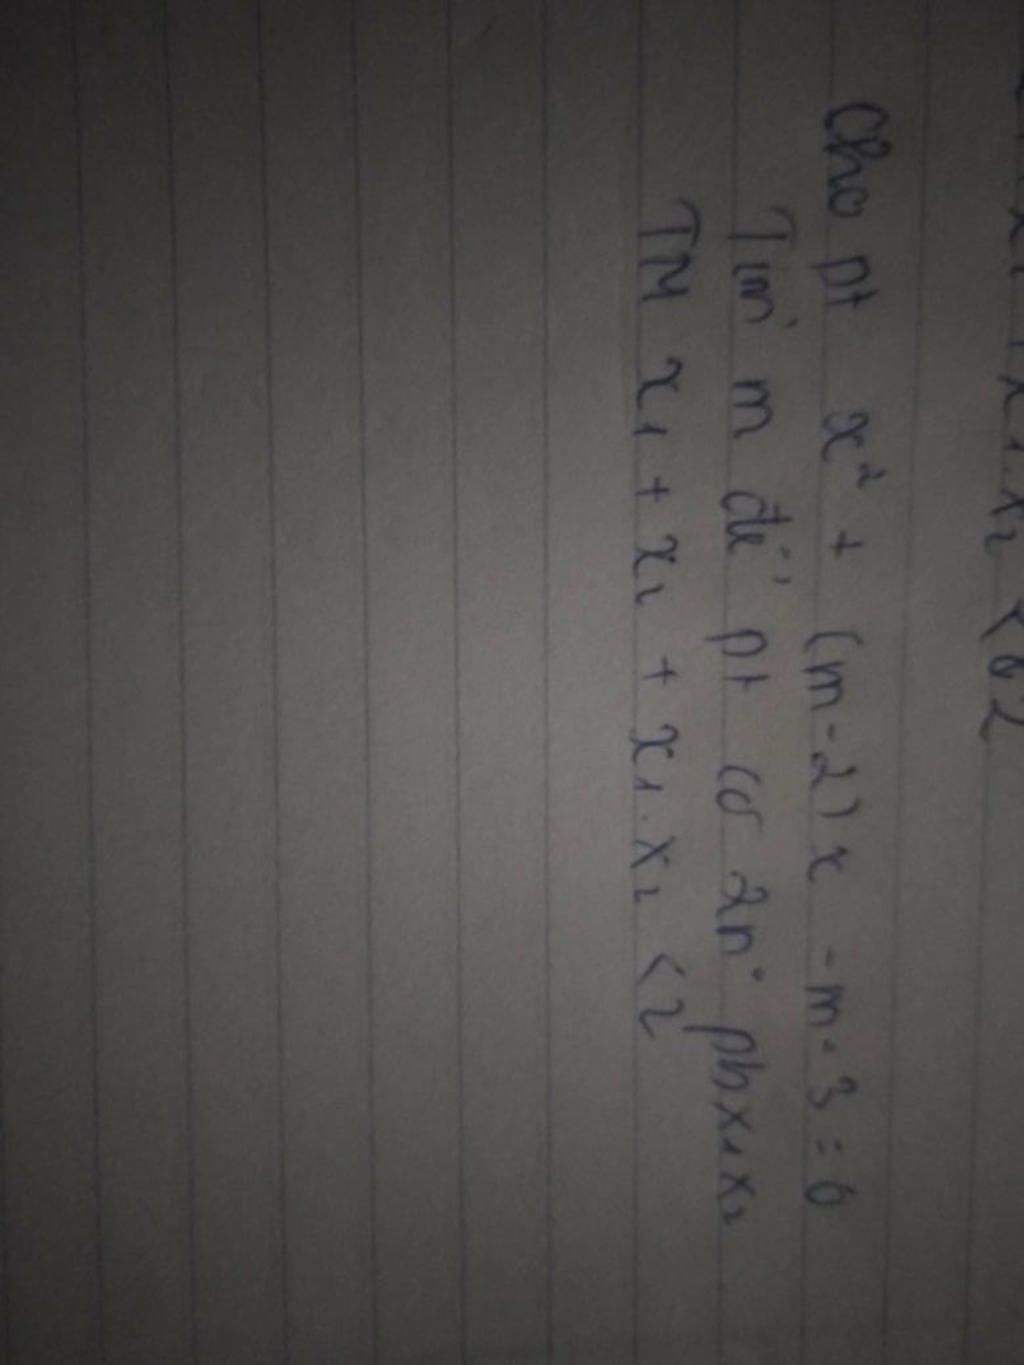 Cho pt x² + (m-2)x - m - 3 = 0
Tìm m để pt có 2n⁰ pb x₁ x₂
TM x₁ + x₂ + x₁.x₂ < 2